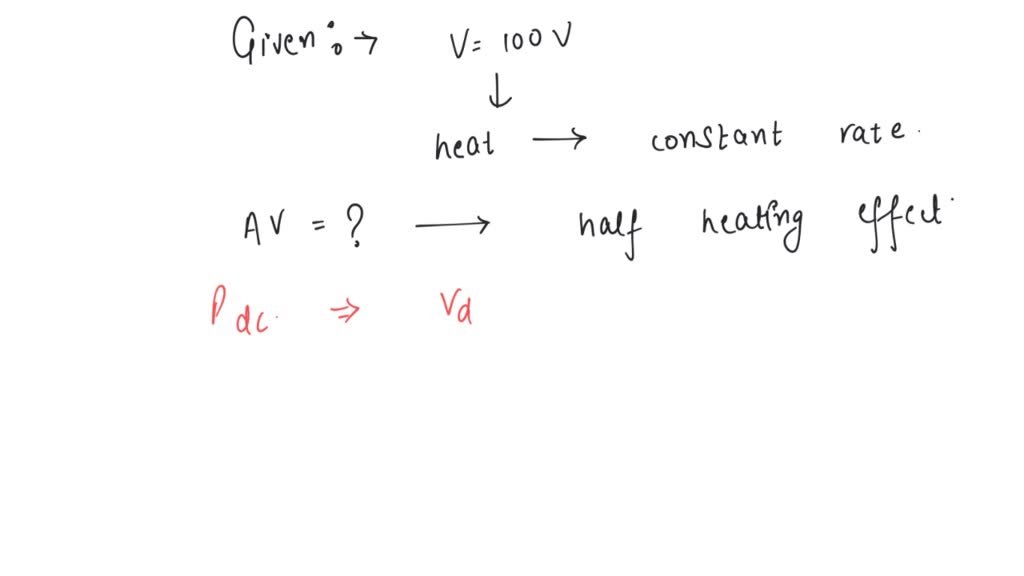 Given :→ V= 100 V
↓
heat → constant rate.
AV = ? → half heating effect.
Pdc. ⇒ Vd